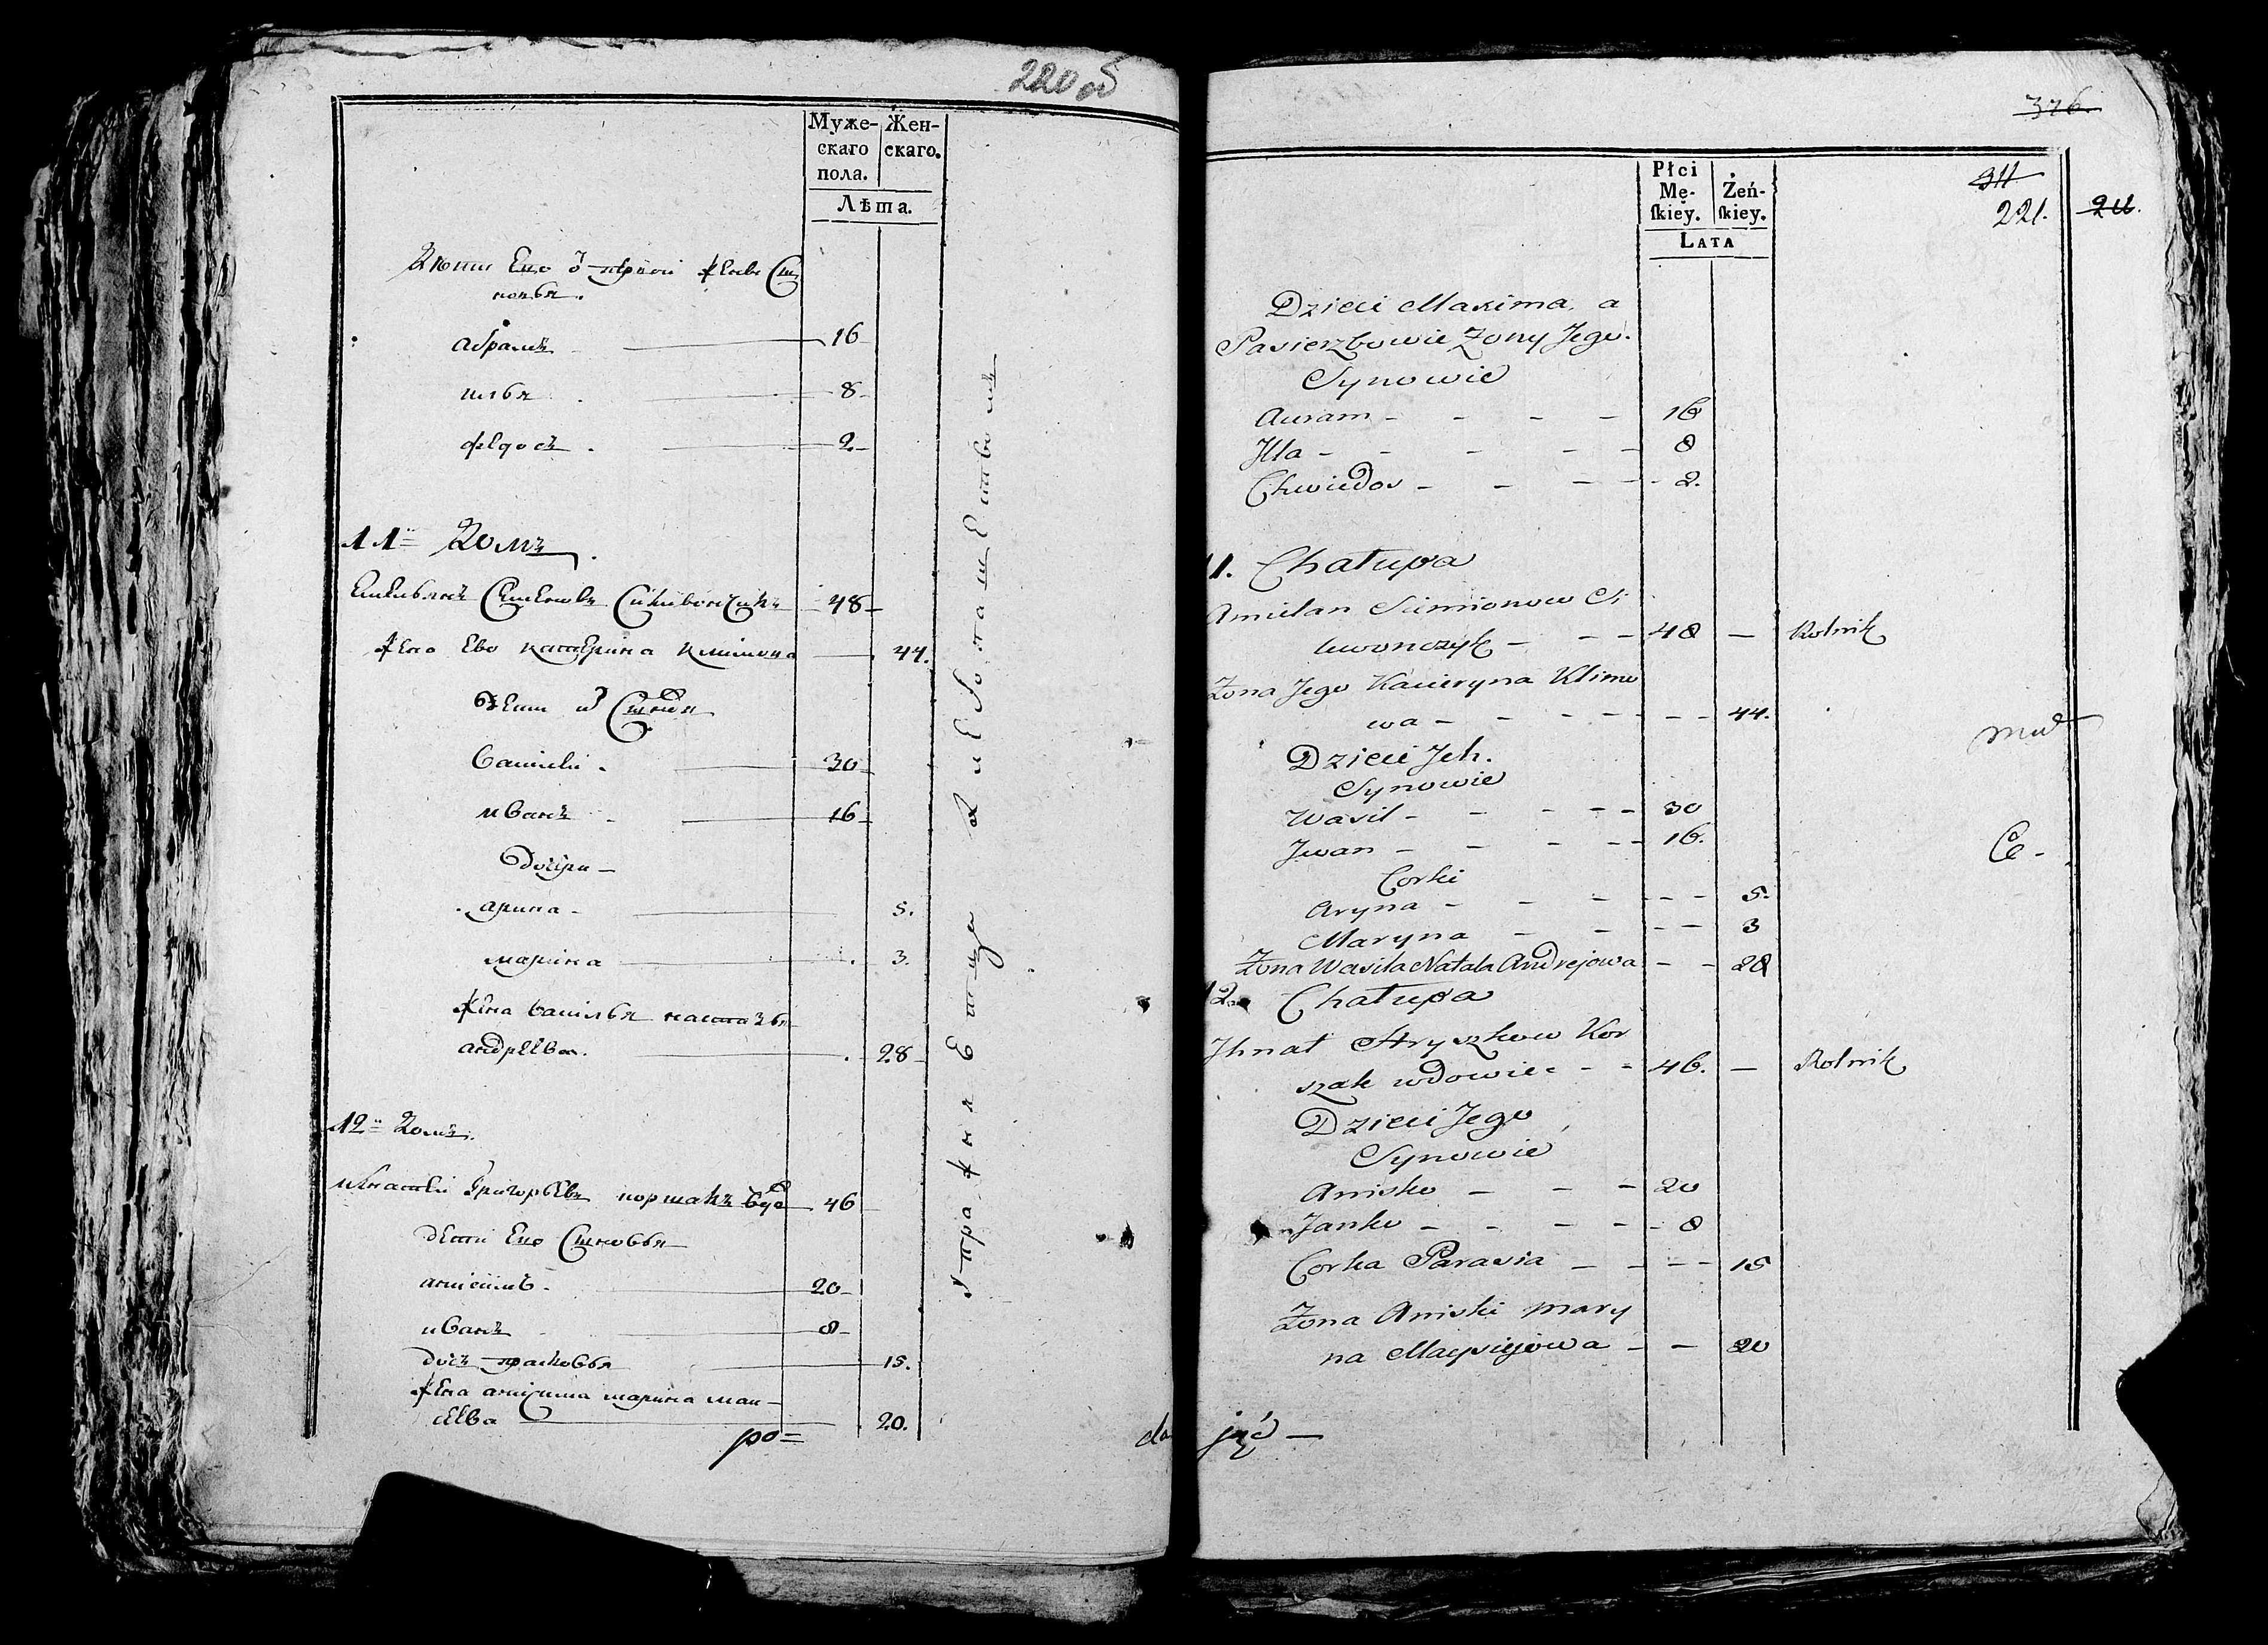 220 об
Муже-
скаго
пола.
Жен-
скаго.
Лѣта.
Дѣти Его
абрамъ 16
илья 8
федосъ 2
11 Домъ
Емельянъ Семеновъ 48
жена Ево катерина климова 44.
дети
василей 30
иванъ 16
дочери
арина 5.
марина 3.
жена василья
андреева. 28
12 Домъ.
игнатей григорьевъ коршакъ вдо 46
дети Его Сыновья
анисимъ 20
иванъ 8
дочь прасковья 15.
жена анисима марина мои-
сеева 20.
ро=
упражняется хлебопашествомъ
376.
Płci
Mę-
ſkiey.
Żeń-
ſkiey.
Lata
311
221. 211.
Dzieci Maxima, a
Pasierzbowie Zony Jego.
Synowie
Auram - - - - 16
Illa - - - - - 8
Chwiedos - - - - 2.
11. Chałupa
Amielan Siemionow Si
luwonczyk - - - 48 - Rolnik
Zona Jego Kacieryna Klimo
wa - - - - - - - 44.
Dzieci Jch.
Synowie
Wasil - - - - - 30
Jwan - - - - - 16.
Corki
Aryna - - - - - - - 5.
Maryna - - - - 3
Zona Wasila Natala Andrejowa - - 28
12. Chałupa
Jhnat Hryszkow Kor
szak wdowiec - - 46. - Rolnik
Dzieci Jego
Synowie
Anisko - - - 20
Janko - - - - - 8
Corka Parasia - - - - 15
Zona Aniski Mary
na Maysiejowa - - 20
da jąć -